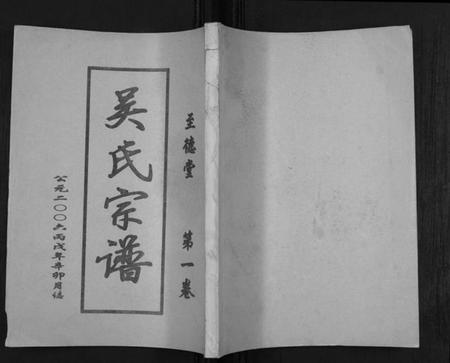 至德堂 第一卷
吴氏宗谱
公元二〇〇六丙戌年辛卯月